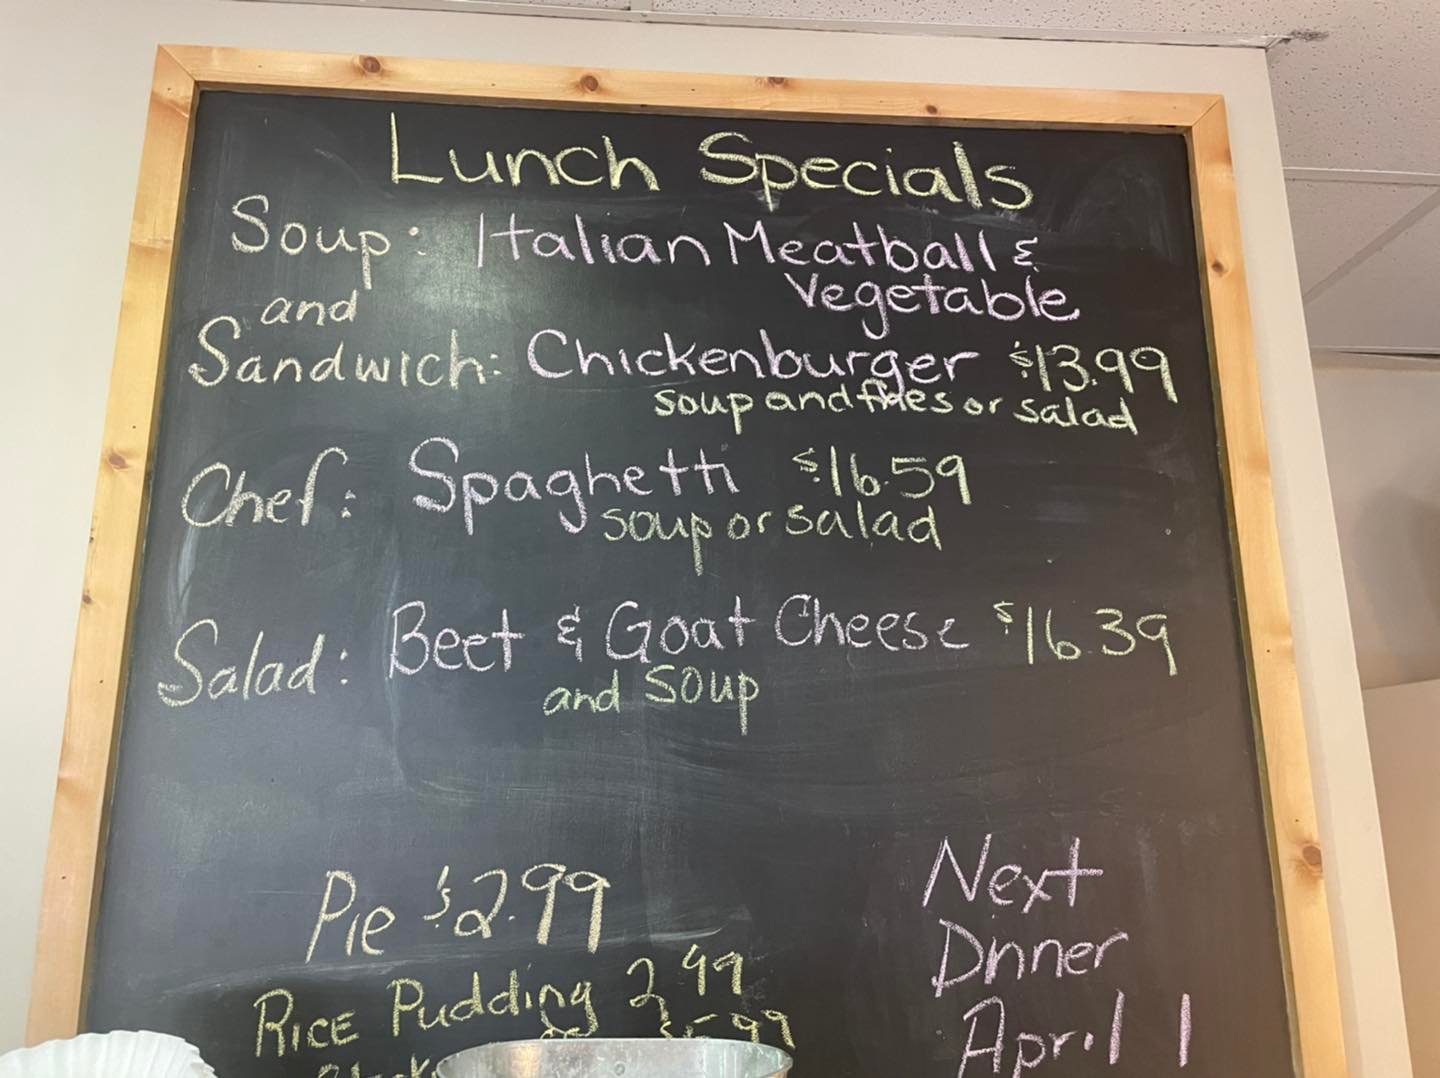 Lunch Specials
Soup: Italian Meatball &
Vegetable
and
Sandwich: Chickenburger $13.99
soup and fries or salad
Chef: Spaghetti $16.59
soup or salad
Salad: Beet & Goat Cheese $16.39
and soup
Pie $2.99
Rice Pudding 2.99
$5.99
Next
Dinner
April 1